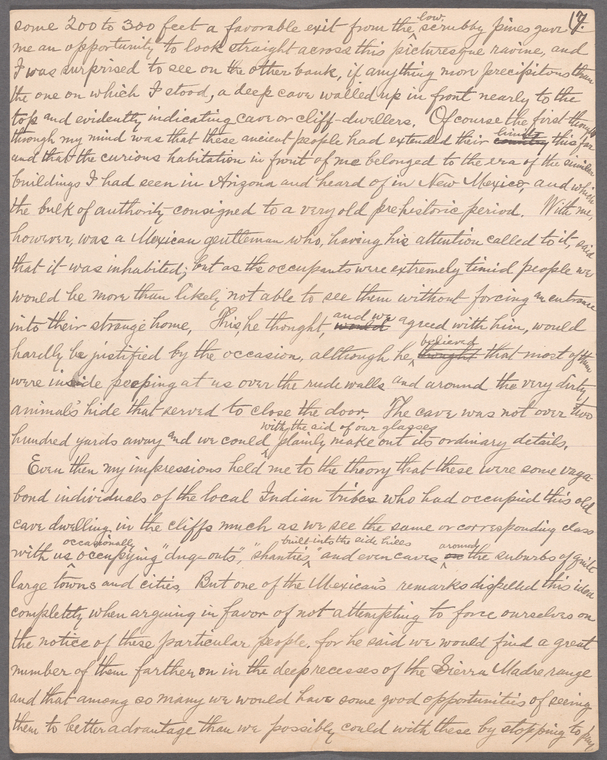 (7.
some 200 to 300 feet a favorable exit from the low, scrubby pines gave
me an opportunity to look straight across this picturesque ravine, and
I was surprised to see on the other bank, if anything more precipitous than
the one on which I stood, a deep cave walled up in front nearly to the
top and evidently indicating cave or cliff-dwellers. Of course the first thought
through my mind was that these ancient people had extended their limits this far
and that the curious habitation in front of me belonged to the era of the similar
buildings I had seen in Arizona and heard of in New Mexico, and which
the bulk of authority consigned to a very old prehistoric period. With me,
however, was a Mexican gentleman who, having his attention called to it, said
that it was inhabited; but as the occupants were extremely timid people we
would be more than likely not able to see them without forcing an entrance
into their strange home, This, he thought, would and we agreed with him, would
hardly be justified by the occasion, although he thought believed that most of them
were inside peeping at us over the rude walls and around the very dirty
animal's hide that served to close the door. The cave was not over two
hundred yards away and we could with the aid of our glasses plainly make out its ordinary details.
Even then my impressions held me to the theory that these were some vaga-
bond individuals of the local Indian tribes who had occupied this old
cave dwelling in the cliffs much as we see the same or corresponding class
with us occasionally occupying "dug-outs", "shanties" built into the side hills and even caves around the suburbs of quite
large towns and cities. But one of the Mexican's remarks dispelled this idea
completely when arguing in favor of not attempting to force ourselves on
the notice of these particular people, for he said we would find a great
number of them farther on in the deep recesses of the Sierra Madre range
and that among so many we would have some good opportunities of seeing
them to better advantage than we possibly could with these by stopping to pay